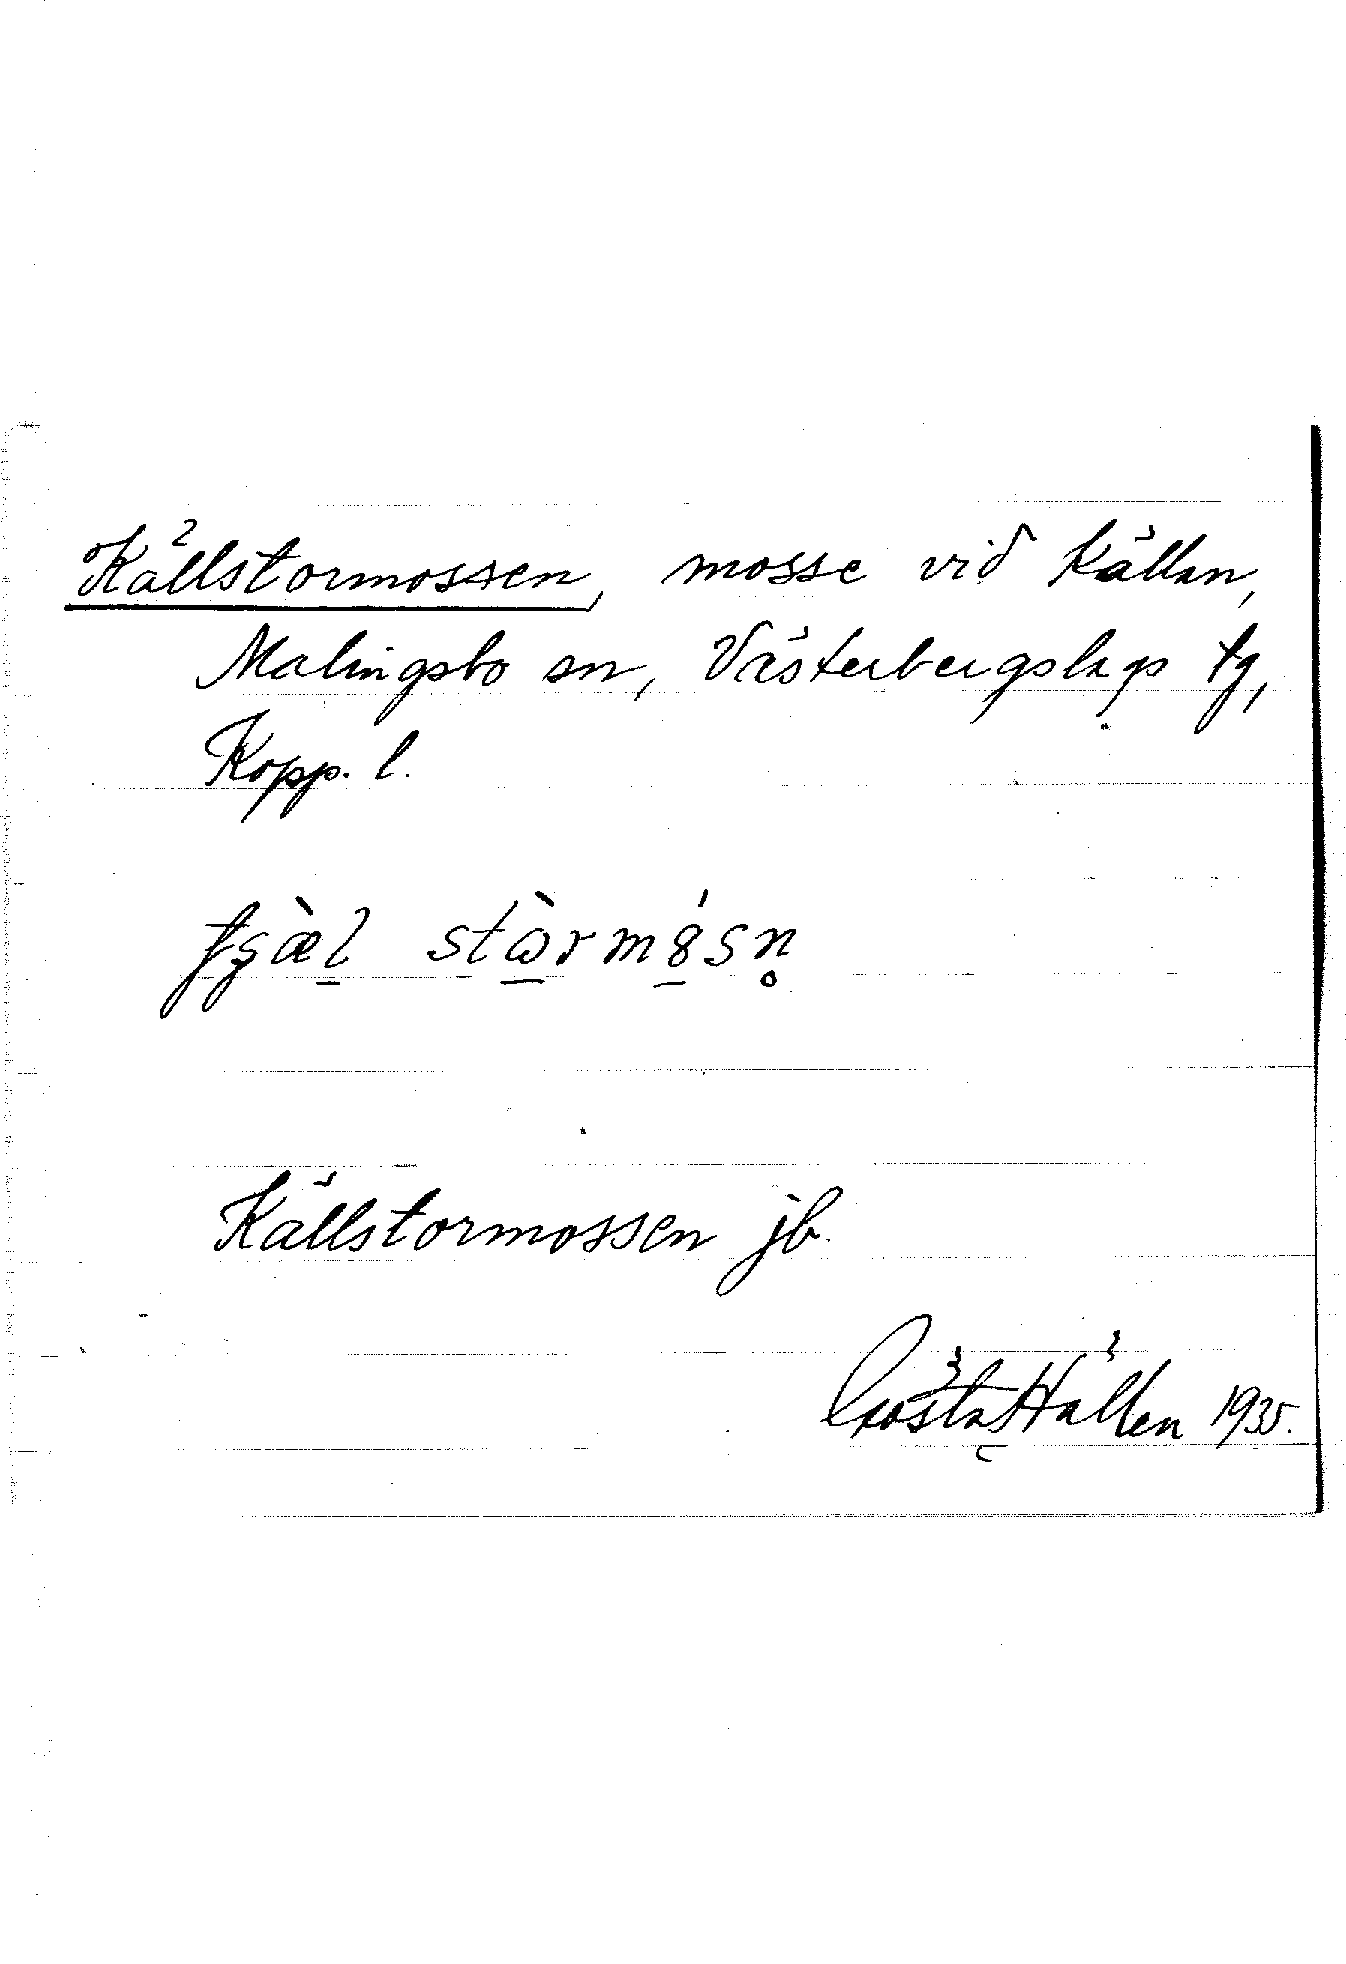 Källstormossen, mosse vid Källan,
Malingsbo sn, Västerbergslags tg,
Kopp. l.
Källstormossen jb.
Gösta Hallén 1935.